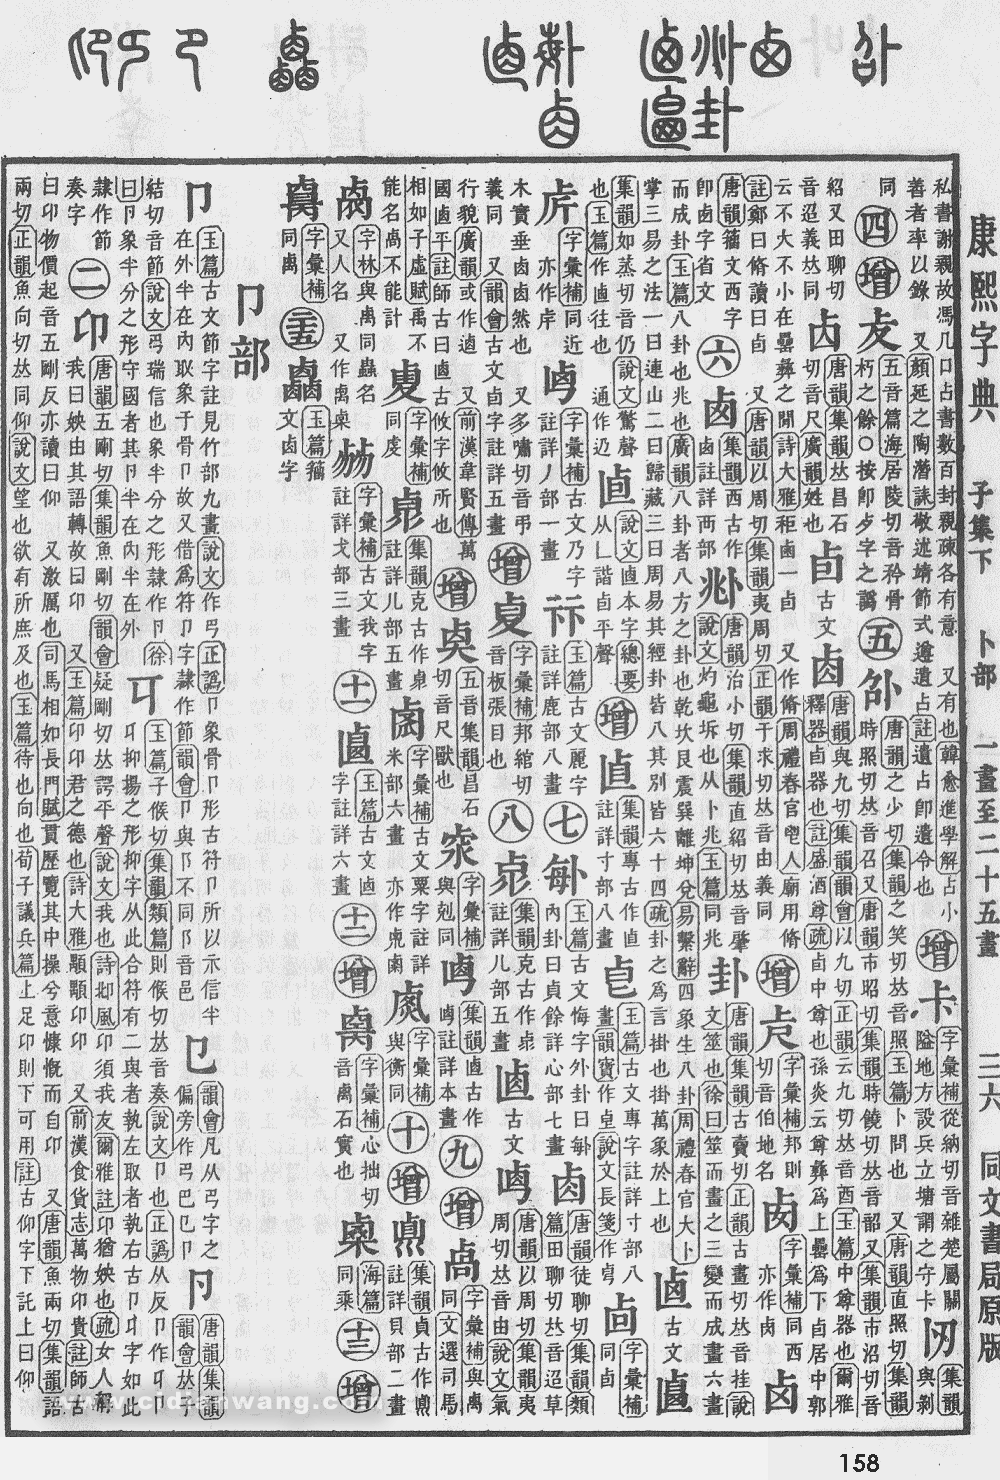 康熙字典 子集下 卜部 一畫至二十五畫 三六 同文書局原版
私書謝親故馮几口占書數百封親疎各有意 又有也韓愈進學解占小
善者率以錄 又顏延之陶潛誄敬述靖節式遵遺占註遺占卽遺令也
增 卡 字彙補從納切音雜楚屬關
隘地方設兵立塘謂之守卡
集韻與剝
同 四 增
五音篇海居陵切音矜骨
朽之餘○按卽歺字之譌
五 卲 唐韻之少切集韻之笑切𠀤音照玉篇卜問也 又唐韻直照切集韻
時照切𠀤音召又唐韻市昭切集韻時饒切𠀤音韶又集韻市沼切音
紹又田聊切
音迢義𠀤同
卤 唐韻集韻𠀤昌石
切音尺廣韻姓也
卣 古文 卤
唐韻與九切集韻韻會以九切正韻云九切𠀤音酉玉篇中尊器也爾雅
釋器卣器也註盛酒尊疏卣中尊也孫炎云尊彝爲上罍爲下卣居中郭
云不大不小在罍彝之閒詩大雅秬鬯一卣 又作脩周禮春官鬯人廟用脩
註鄭曰脩讀曰卣 又唐韻以周切集韻夷周切正韻于求切𠀤音由義同
增 字彙補邦則
切音伯地名
字彙補同西
亦作卤
卥
唐韻籀文西字
卽卤字省文
六 卤 集韻西古作
卤註詳西部
𠧞 唐韻治小切集韻直紹切𠀤音肇
說文灼龜坼也从卜兆玉篇同兆
卦 唐韻集韻古賣切正韻古畫切𠀤音挂說
文筮也徐曰筮而畫之三變而成畫六畫
而成卦玉篇八卦也兆也廣韻八卦者八方之卦也乾坎艮震巽離坤兌易繫辭四象生八卦周禮春官大卜
掌三易之法一曰連山二曰歸藏三曰周易其經卦皆八其別皆六十四疏卦之爲言掛也掛萬象於上也
古文
集韻如蒸切音仍說文驚聲
也玉篇作𠧟往也 通作迺
說文𠧟本字總要
从乚諧卣平聲
增 集韻專古作
註詳寸部八畫
玉篇古文專字註詳寸部八
畫韻寶作皀說文長箋作
字彙補
同卣
字彙補同近
亦作
字彙補古文乃字
註詳丿部一畫
玉篇古文麗字
註詳鹿部八畫
七 玉篇古文悔字外卦曰
內卦曰貞餘詳心部七畫
卥 唐韻徒聊切集韻類
篇田聊切𠀤音迢草
木實垂卥卥然也 又多嘯切音弔
義同 又韻會古文卣字註詳五畫
增 字彙補邦綰切
音板張目也
八 集韻克古作
註詳儿部五畫
古文
唐韻以周切集韻夷
周切𠀤音由說文氣
行貌廣韻或作逌 又前漢韋賢傳萬
國逌平註師古曰逌古攸字攸所也
增 五音集韻昌石
切音尺獸也
字彙補
與剋同
集韻逌古作
註詳本畫
九 增 卨 字彙補與禼
同文選司馬
相如子虛賦禹不
能名卨不能計
字彙補
同虔
集韻克古作
註詳儿部五畫
字彙補古文粟字註詳
米部六畫 亦作
字彙補
與衡同
十 增 集韻貞古作
註詳貝部二畫
卨 字林與禼同蟲名
又人名 又作禼
字彙補古文我字
註詳戈部三畫
十一 玉篇古文逌
字註詳六畫
十二 增 字彙補心拙切
音卨石實也
海篇
同乘
十三 增
字彙補
同卨
二十五 玉篇籀
文卣字
卩部
卩 玉篇古文節字註見竹部九畫說文作𢎛正譌卩象骨卩形古符卩所以示信半
在外半在內取象于骨卩故又借爲符卩字隷作節韻會卩與阝不同阝音邑
㔾 韻會凡从𢎛字之
偏旁作𢎛㔾㔾卩
唐韻集韻
韻會𠀤子
結切音節說文𢎛瑞信也象半分之形隷作卩徐
曰卩象半分之形守國者其卩半在內半在外
玉篇子𠋫切集韻類篇則𠋫切𠀤音奏說文卩也正譌从反卩作
卩抑揚之形抑字从此合符有二與者執左取者執右古卩字如此
隷作節
奏字
二 卬 唐韻五剛切集韻魚剛切韻會疑剛切𠀤諤平聲說文我也詩邶風卬須我友爾雅註卬猶姎也疏女人解
我曰姎由其語轉故曰卬 又玉篇卬卬君之德也詩大雅顒顒卬卬 又前漢食貨志萬物卬貴註師古
曰卬物價起音五剛反亦讀曰仰 又激厲也司馬相如長門賦貫歷覽其中操兮意慷慨而自卬 又唐韻魚兩切集韻語
兩切正韻魚向切𠀤同仰說文望也欲有所庶及也玉篇待也向也荀子議兵篇上足卬則下可用註古仰字下託上曰仰
www.cidianwang.com
158